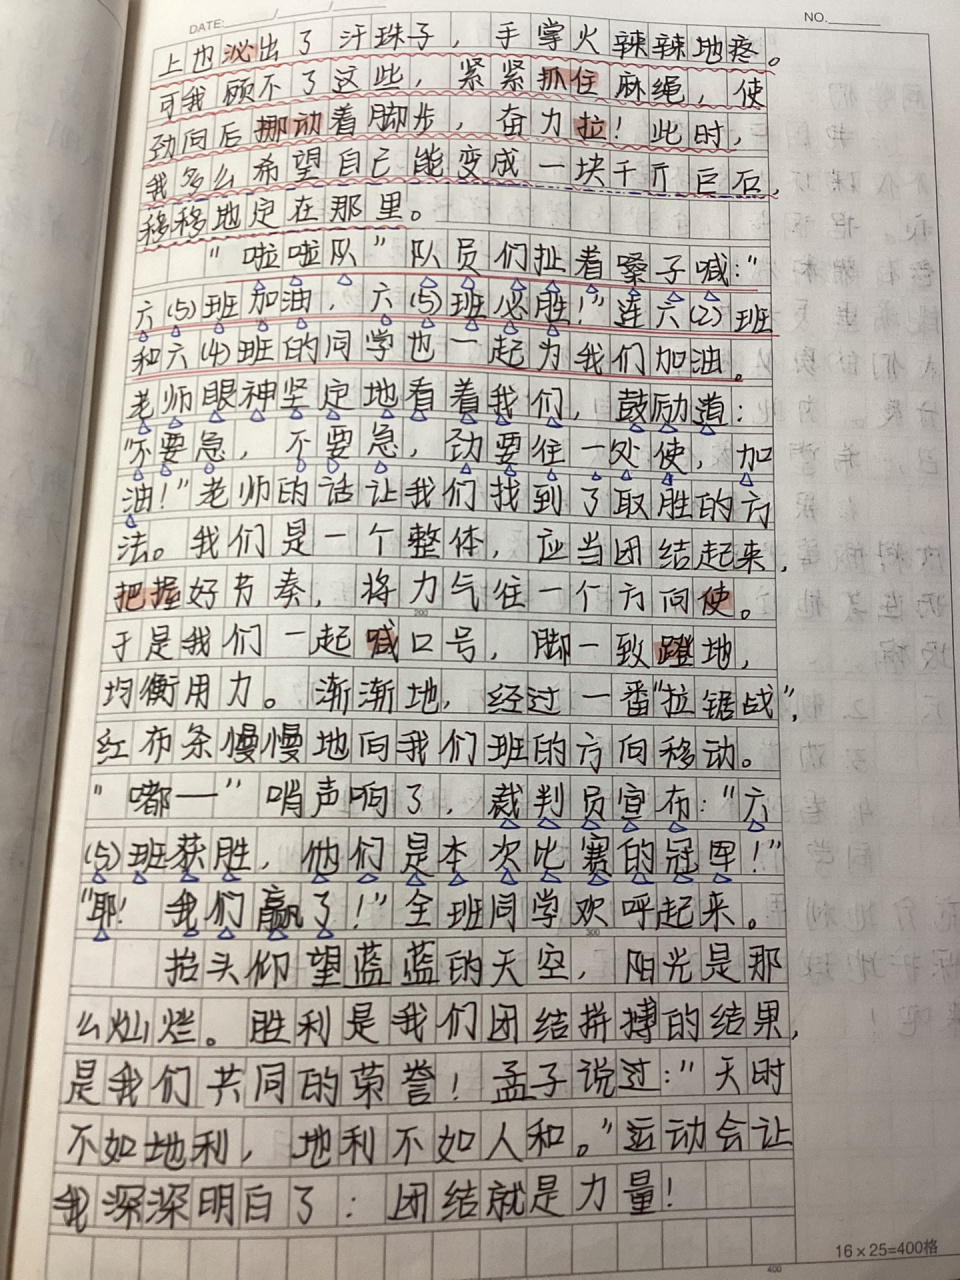 DATE: / /
NO.
上也沁出了汗珠子，手掌火辣辣地疼。
可我顾不了这些，紧紧抓住麻绳，使
劲向后挪动着脚步，奋力拉！此时，
我多么希望自己能变成一块千斤巨石，
移移地定在那里。
"啦啦队"队员们扯着嗓子喊："
六(5)班加油，六(5)班必胜！"连六(2)班
和六(4)班的同学也一起为我们加油。
老师眼神坚定地看着我们，鼓励道：
"不要急，不要急，劲要往一处使，加
油！"老师的话让我们找到了取胜的方
法。我们是一个整体，应当团结起来，
把握好节奏，将力气往一个方向使。
于是我们一起喊口号，脚一致蹬地，
均衡用力。渐渐地，经过一番"拉锯战"，
红布条慢慢地向我们班的方向移动。
"嘟——"哨声响了，裁判员宣布："六
(5)班获胜，他们是本次比赛的冠军！"
"耶！我们赢了！"全班同学欢呼起来。
抬头仰望蓝蓝的天空，阳光是那
么灿烂。胜利是我们团结拼搏的结果，
是我们共同的荣誉！孟子说过："天时
不如地利，地利不如人和。"运动会让
我深深明白了：团结就是力量！
16×25=400格